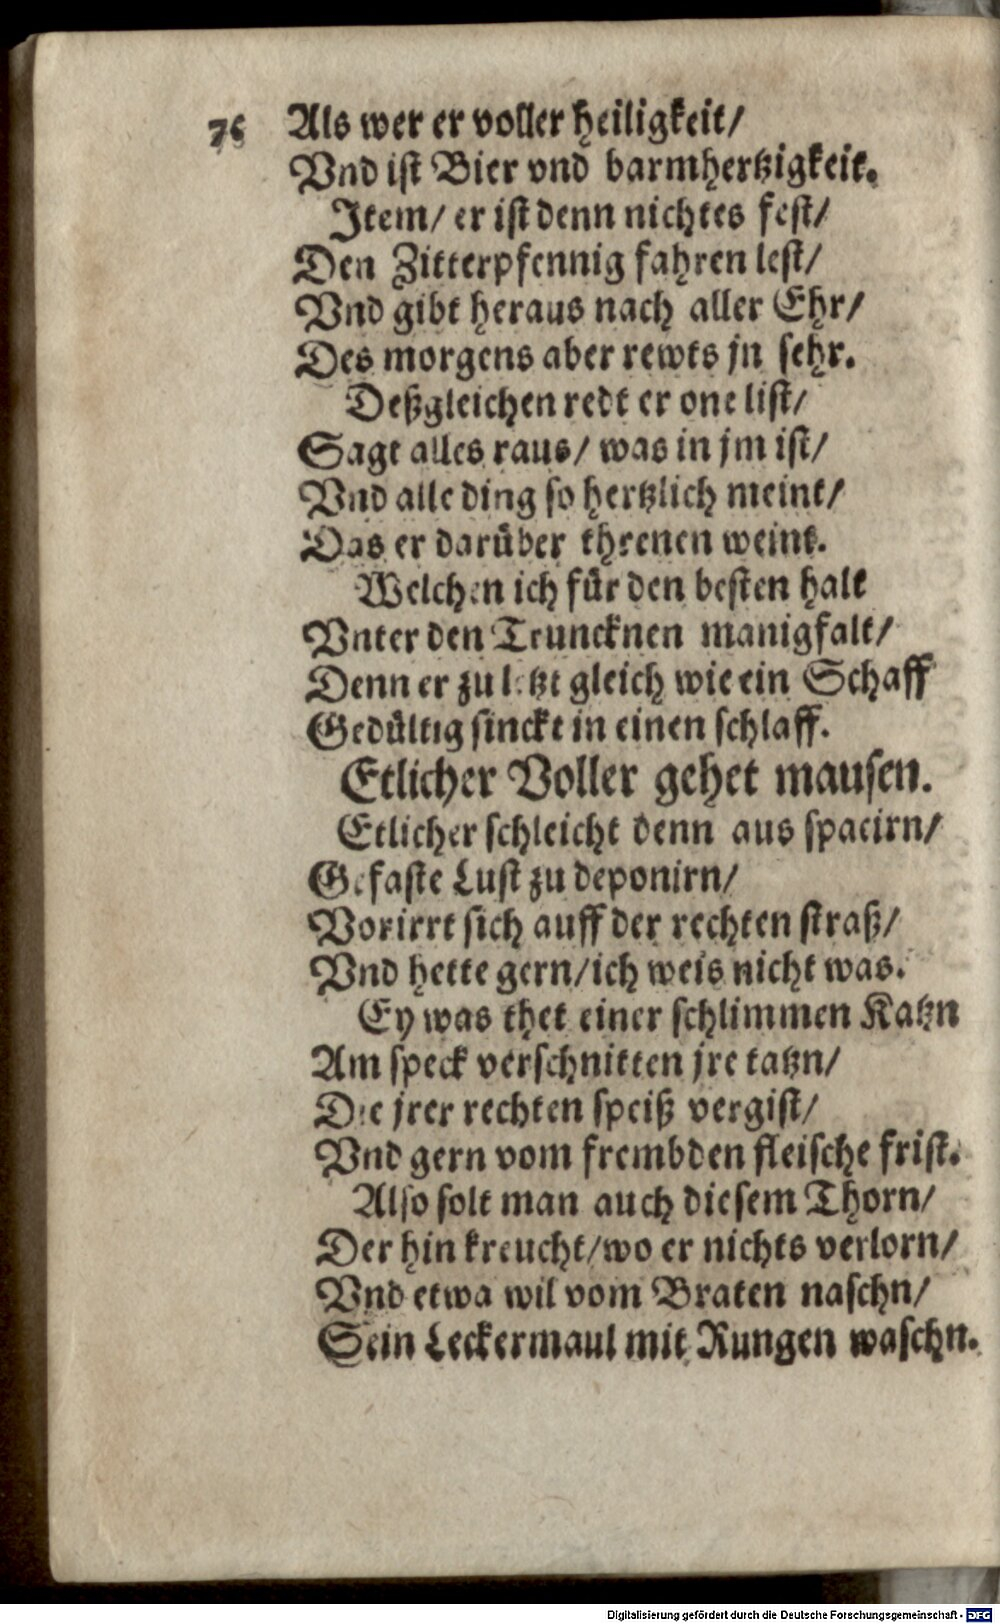 76 Als wer er voller heiligkeit/
Vnd ist Bier vnd barmhertzigkeit.
Item/ er ist denn nichtes fest/
Den Zitterpfennig fahren lest/
Vnd gibt heraus nach aller Ehr/
Des morgens aber rewts jn sehr.
Deßgleichen redt er one list/
Sagt alles raus/ was in jm ist/
Vnd alle ding so hertzlich meint/
Das er darüber threnen weint.
Welchen ich für den besten halt
Vnter den Truncknen manigfalt/
Denn er zu letzt gleich wie ein Schaff
Gedültig sinckt in einen schlaff.
Etlicher Voller gehet mausen.
Etlicher schleicht denn aus spacirn/
Gefaste Lust zu deponirn/
Vorirrt sich auff der rechten straß/
Vnd hette gern/ich weis nicht was.
Ey was thet einer schlimmen Katzn
Am speck verschnitten jre tatzn/
Die jrer rechten speiß vergist/
Vnd gern vom frembden fleische frist.
Also solt man auch diesem Thorn/
Der hin kreucht/wo er nichts verlorn/
Vnd etwa wil vom Braten naschn/
Sein Leckermaul mit Rungen waschn.
Digitalisierung gefördert durch die Deutsche Forschungsgemeinschaft - DFG